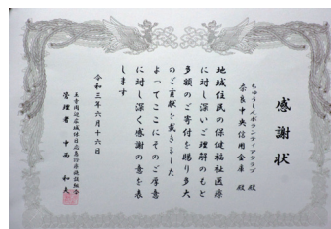 感謝状
ちゅうしんボランティアクラブ 殿
奈良中央信用金庫 殿
地域住民の保健福祉医療
に対し深いご理解のもと
多額のご寄付を賜り多大
のご貢献を戴きました
よってここにそのご厚意
に対し深く感謝の意を表
します
令和三年六月十六日
王寺周辺広域休日応急診療施設組合
管理者 中西 和夫